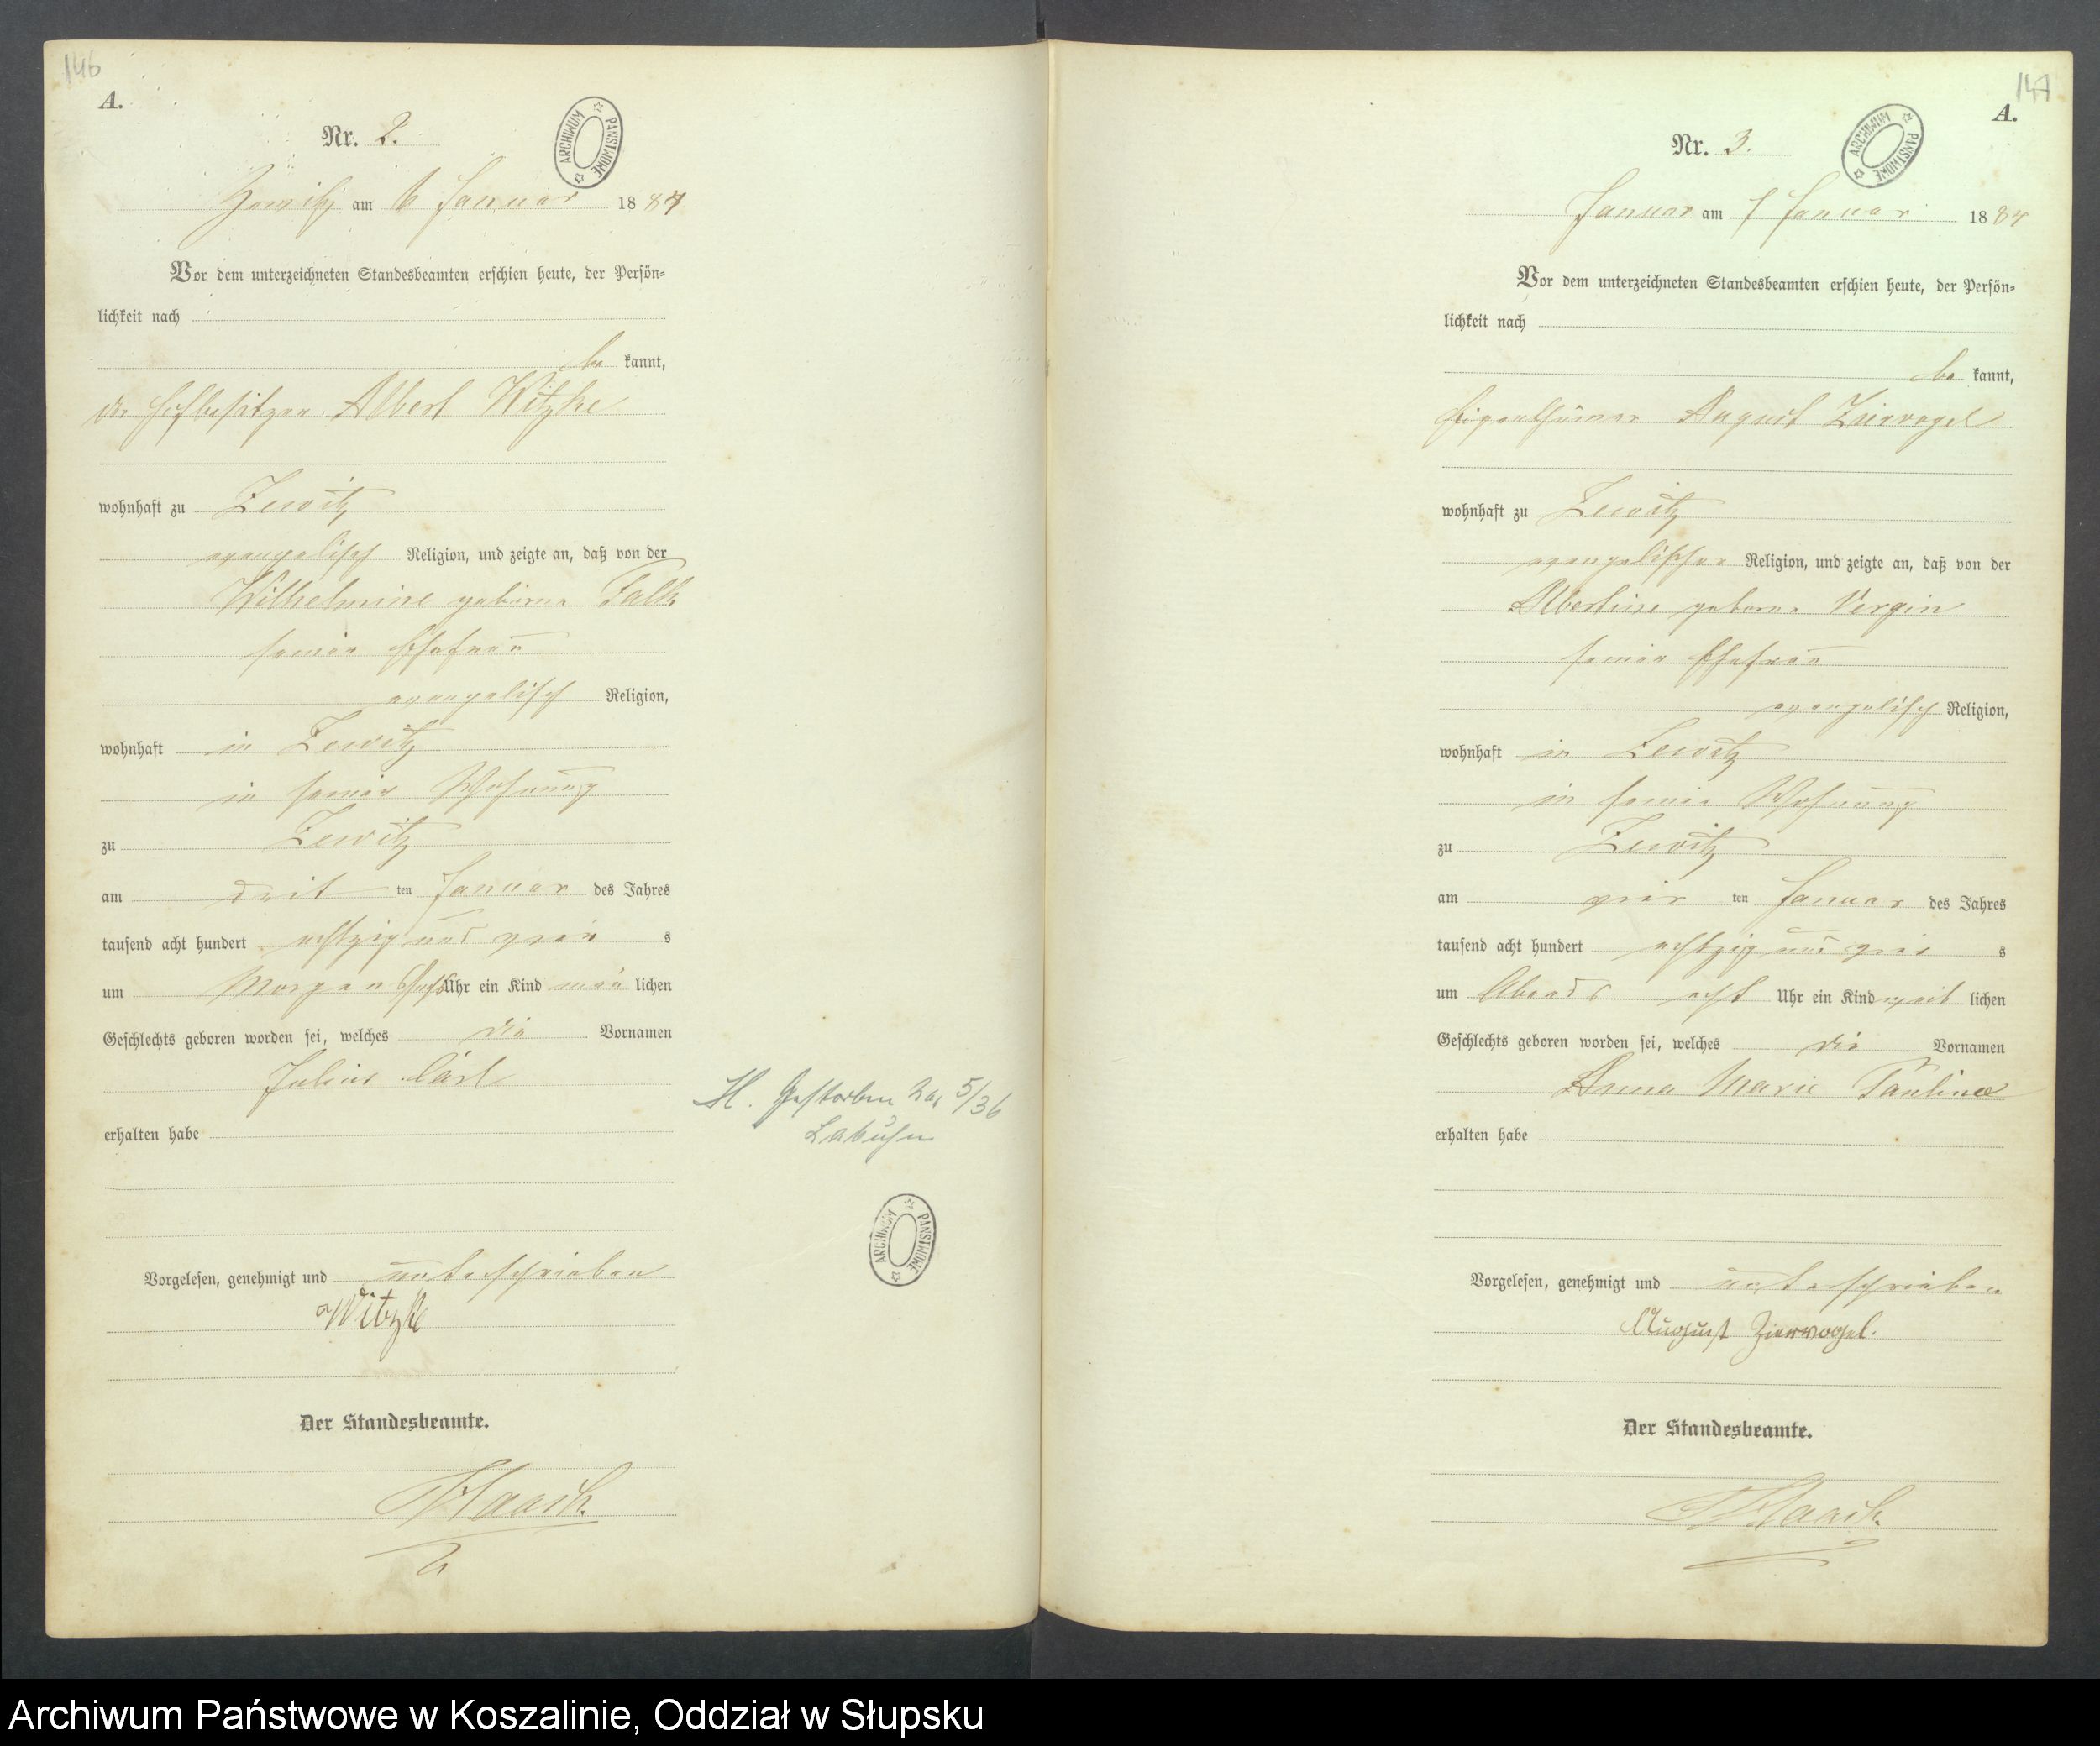 146
A.
Nr. 2.
am 6 Januar 1884
Vor dem unterzeichneten Standesbeamten erschien heute, der Persön-
lichkeit nach
be kannt,
der Hofbesitzer Albert Witzke
wohnhaft zu Zewitz
evangelisch Religion, und zeigte an, daß von der
Wilhelmine geborne Falk
seiner Ehefrau
evangelisch Religion,
wohnhaft in Zewitz
in seiner Wohnung
zu Zewitz
am drit ten Januar des Jahres
tausend acht hundert achtzig und vier s
um Morgens sechs Uhr ein Kind män lichen
Geschlechts geboren worden sei, welches die Vornamen
Julius Carl
erhalten habe
Vorgelesen, genehmigt und unterschrieben
Witzke
Der Standesbeamte.
H. Gestorben 5/36
Labuhn
ARCHIWUM PAŃSTWOWE
ARCHIWUM PAŃSTWOWE
147
A.
Nr. 3.
ARCHIWUM PAŃSTWOWE
Januar am 7 Januar 1884
Vor dem unterzeichneten Standesbeamten erschien heute, der Persön-
lichkeit nach
be kannt,
Eigenthümer August Ziervogel
wohnhaft zu Zewitz
evangelischer Religion, und zeigte an, daß von der
Albertine geborne Vergin
seiner Ehefrau
evangelisch Religion,
wohnhaft in Zewitz
in seiner Wohnung
zu Zewitz
am vier ten Januar des Jahres
tausend acht hundert achtzig und vier s
um Abends acht Uhr ein Kind weib lichen
Geschlechts geboren worden sei, welches die Vornamen
Anna Marie Pauline
erhalten habe
Vorgelesen, genehmigt und unterschrieben
August Ziervogel.
Der Standesbeamte.
Archiwum Państwowe w Koszalinie, Oddział w Słupsku